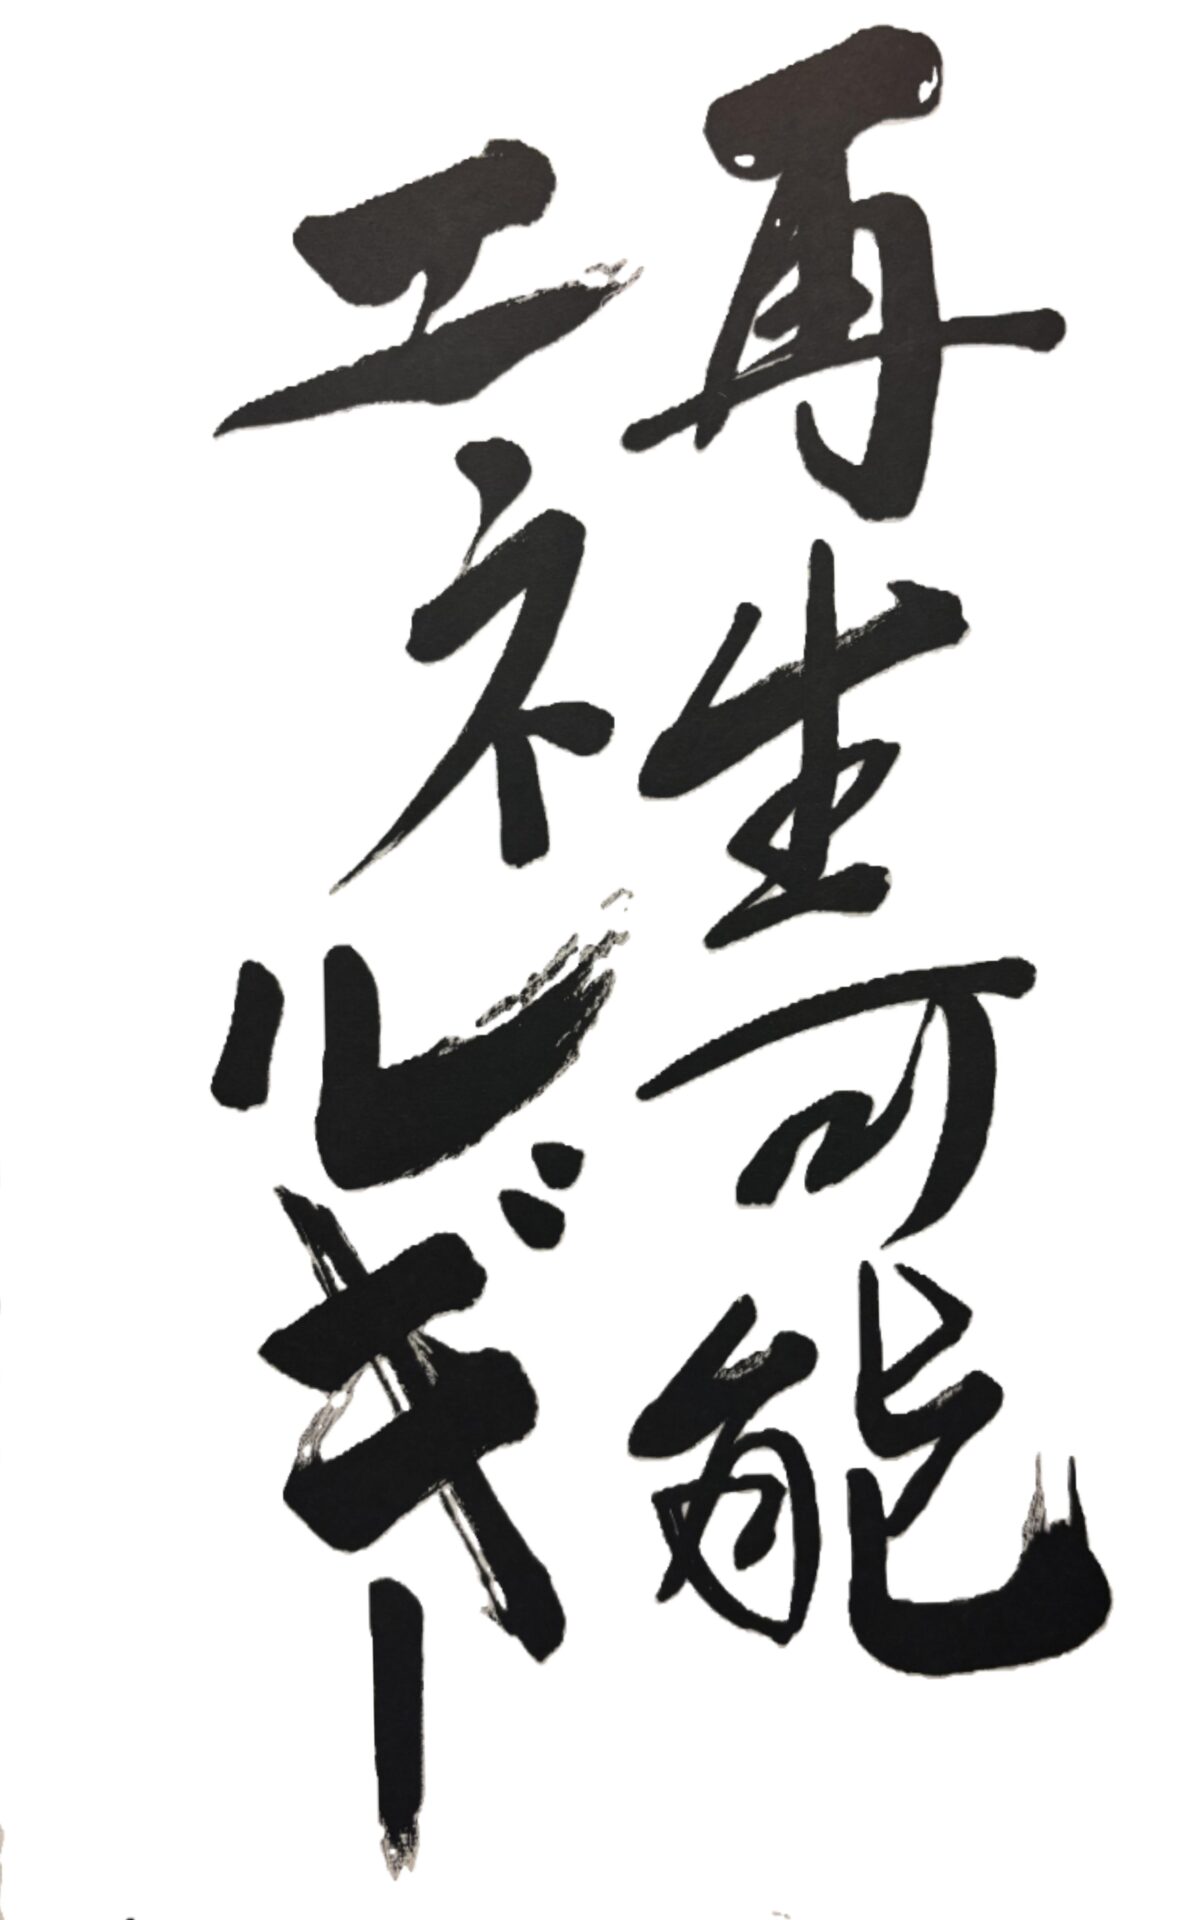 再生可能
エネルギー